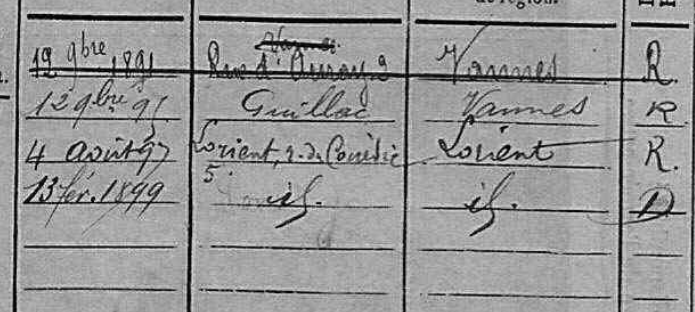 de région.
Vannes
12 9bre 1891 Rue d'Auray 2 Vannes R.
12 9bre 91 Guillac Vannes R
4 août 97 Lorient, r. du Couëdic Lorient R.
5
13 fév. 1899 id. id. D